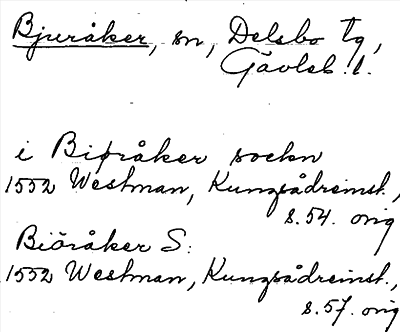 Bjuråker, sn, Delsbo tg,
Gävleb. l.
i Biuråker sockn
1552 Westman, Kungsådreinst.,
s. 54. orig
Biöråker S:
1552 Westman, Kungsådreinst.,
s. 57. orig